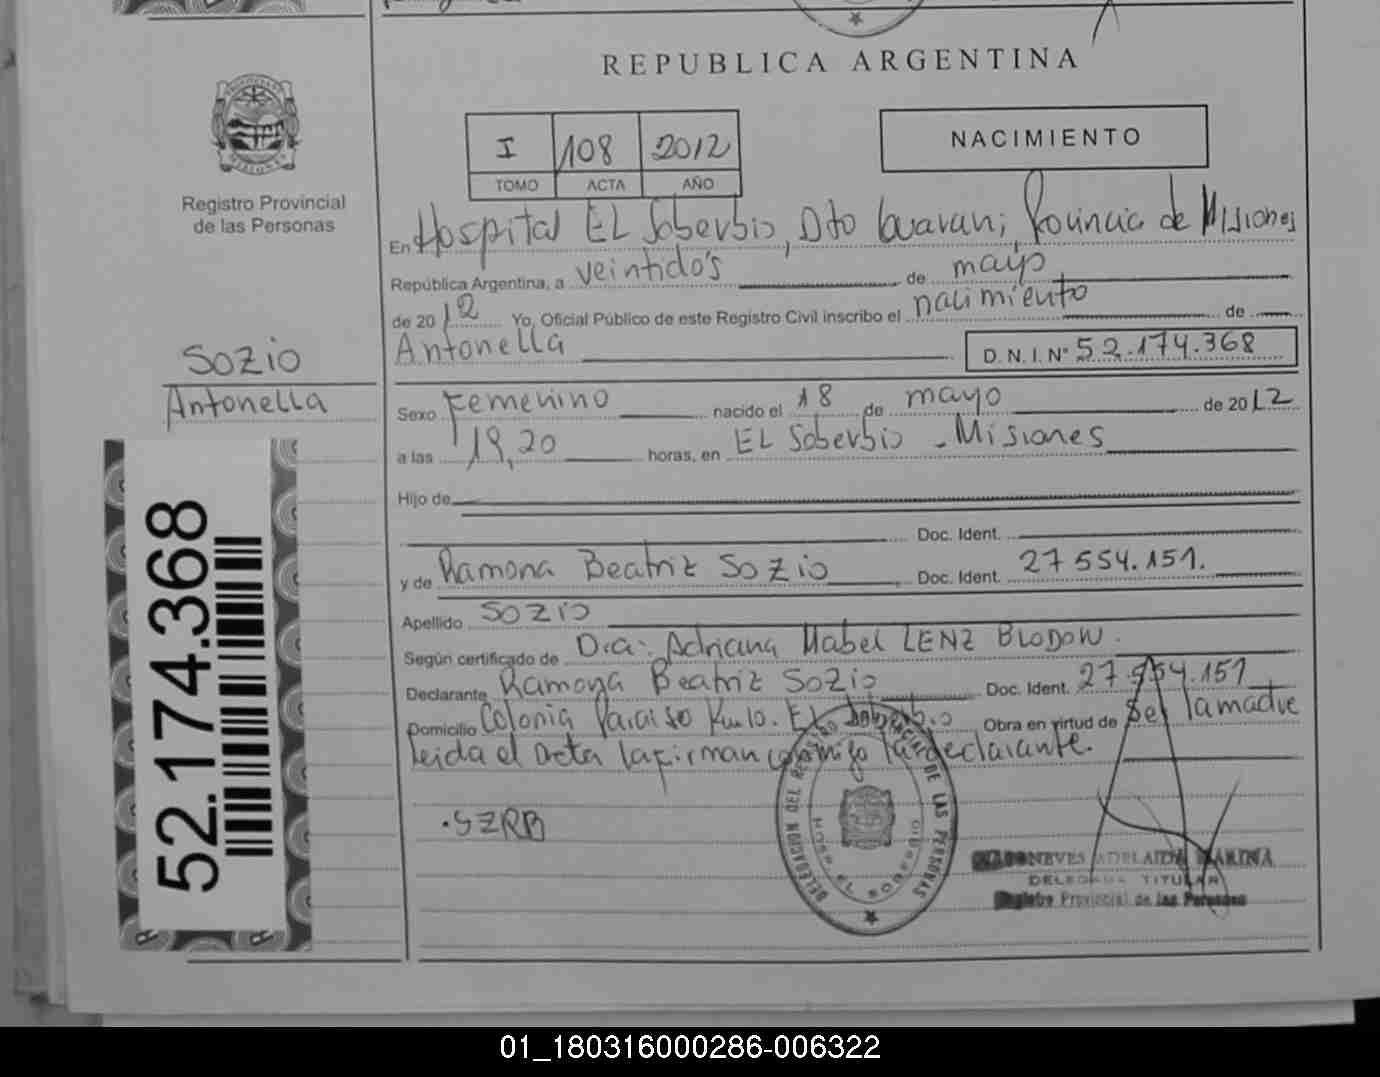 REPUBLICA ARGENTINA
Registro Provincial
de las Personas
I 108 2012
TOMO ACTA AÑO
NACIMIENTO
En Hospital EL Soberbio, Dto Guarani, Provincia de Misiones
República Argentina, a veintidós de mayo
de 2012 Yo, Oficial Público de este Registro Civil inscribo el nacimiento de
Antonella D.N.I.Nº 52.174.368
SOZIO
Antonella
Sexo Femenino nacido el 18 de mayo de 2012
a las 19,20 horas, en EL Soberbio - Misiones
Hijo de
Doc. Ident.
y de Ramona Beatriz SOZIO Doc. Ident. 27 554.151.
Apellido SOZIO
Según certificado de Dra: Adriana Mabel LENZ BLODOW.
Declarante Ramona Beatriz SOZIO Doc. Ident. 27.554.151
Domicilio Colonia Paraiso Km 10. El Soberbio Obra en virtud de Ser la madre
leida el Acta la firman conmigo la declarante.
52.174.368
.SZRB
DELEGACION DEL REGISTRO PROVINCIAL DE LAS PERSONAS
HOSP. EL SOBERBIO
ADELAIDA MARINA
DELEGADA TITULAR
Registro Provincial de las Personas
01_180316000286-006322